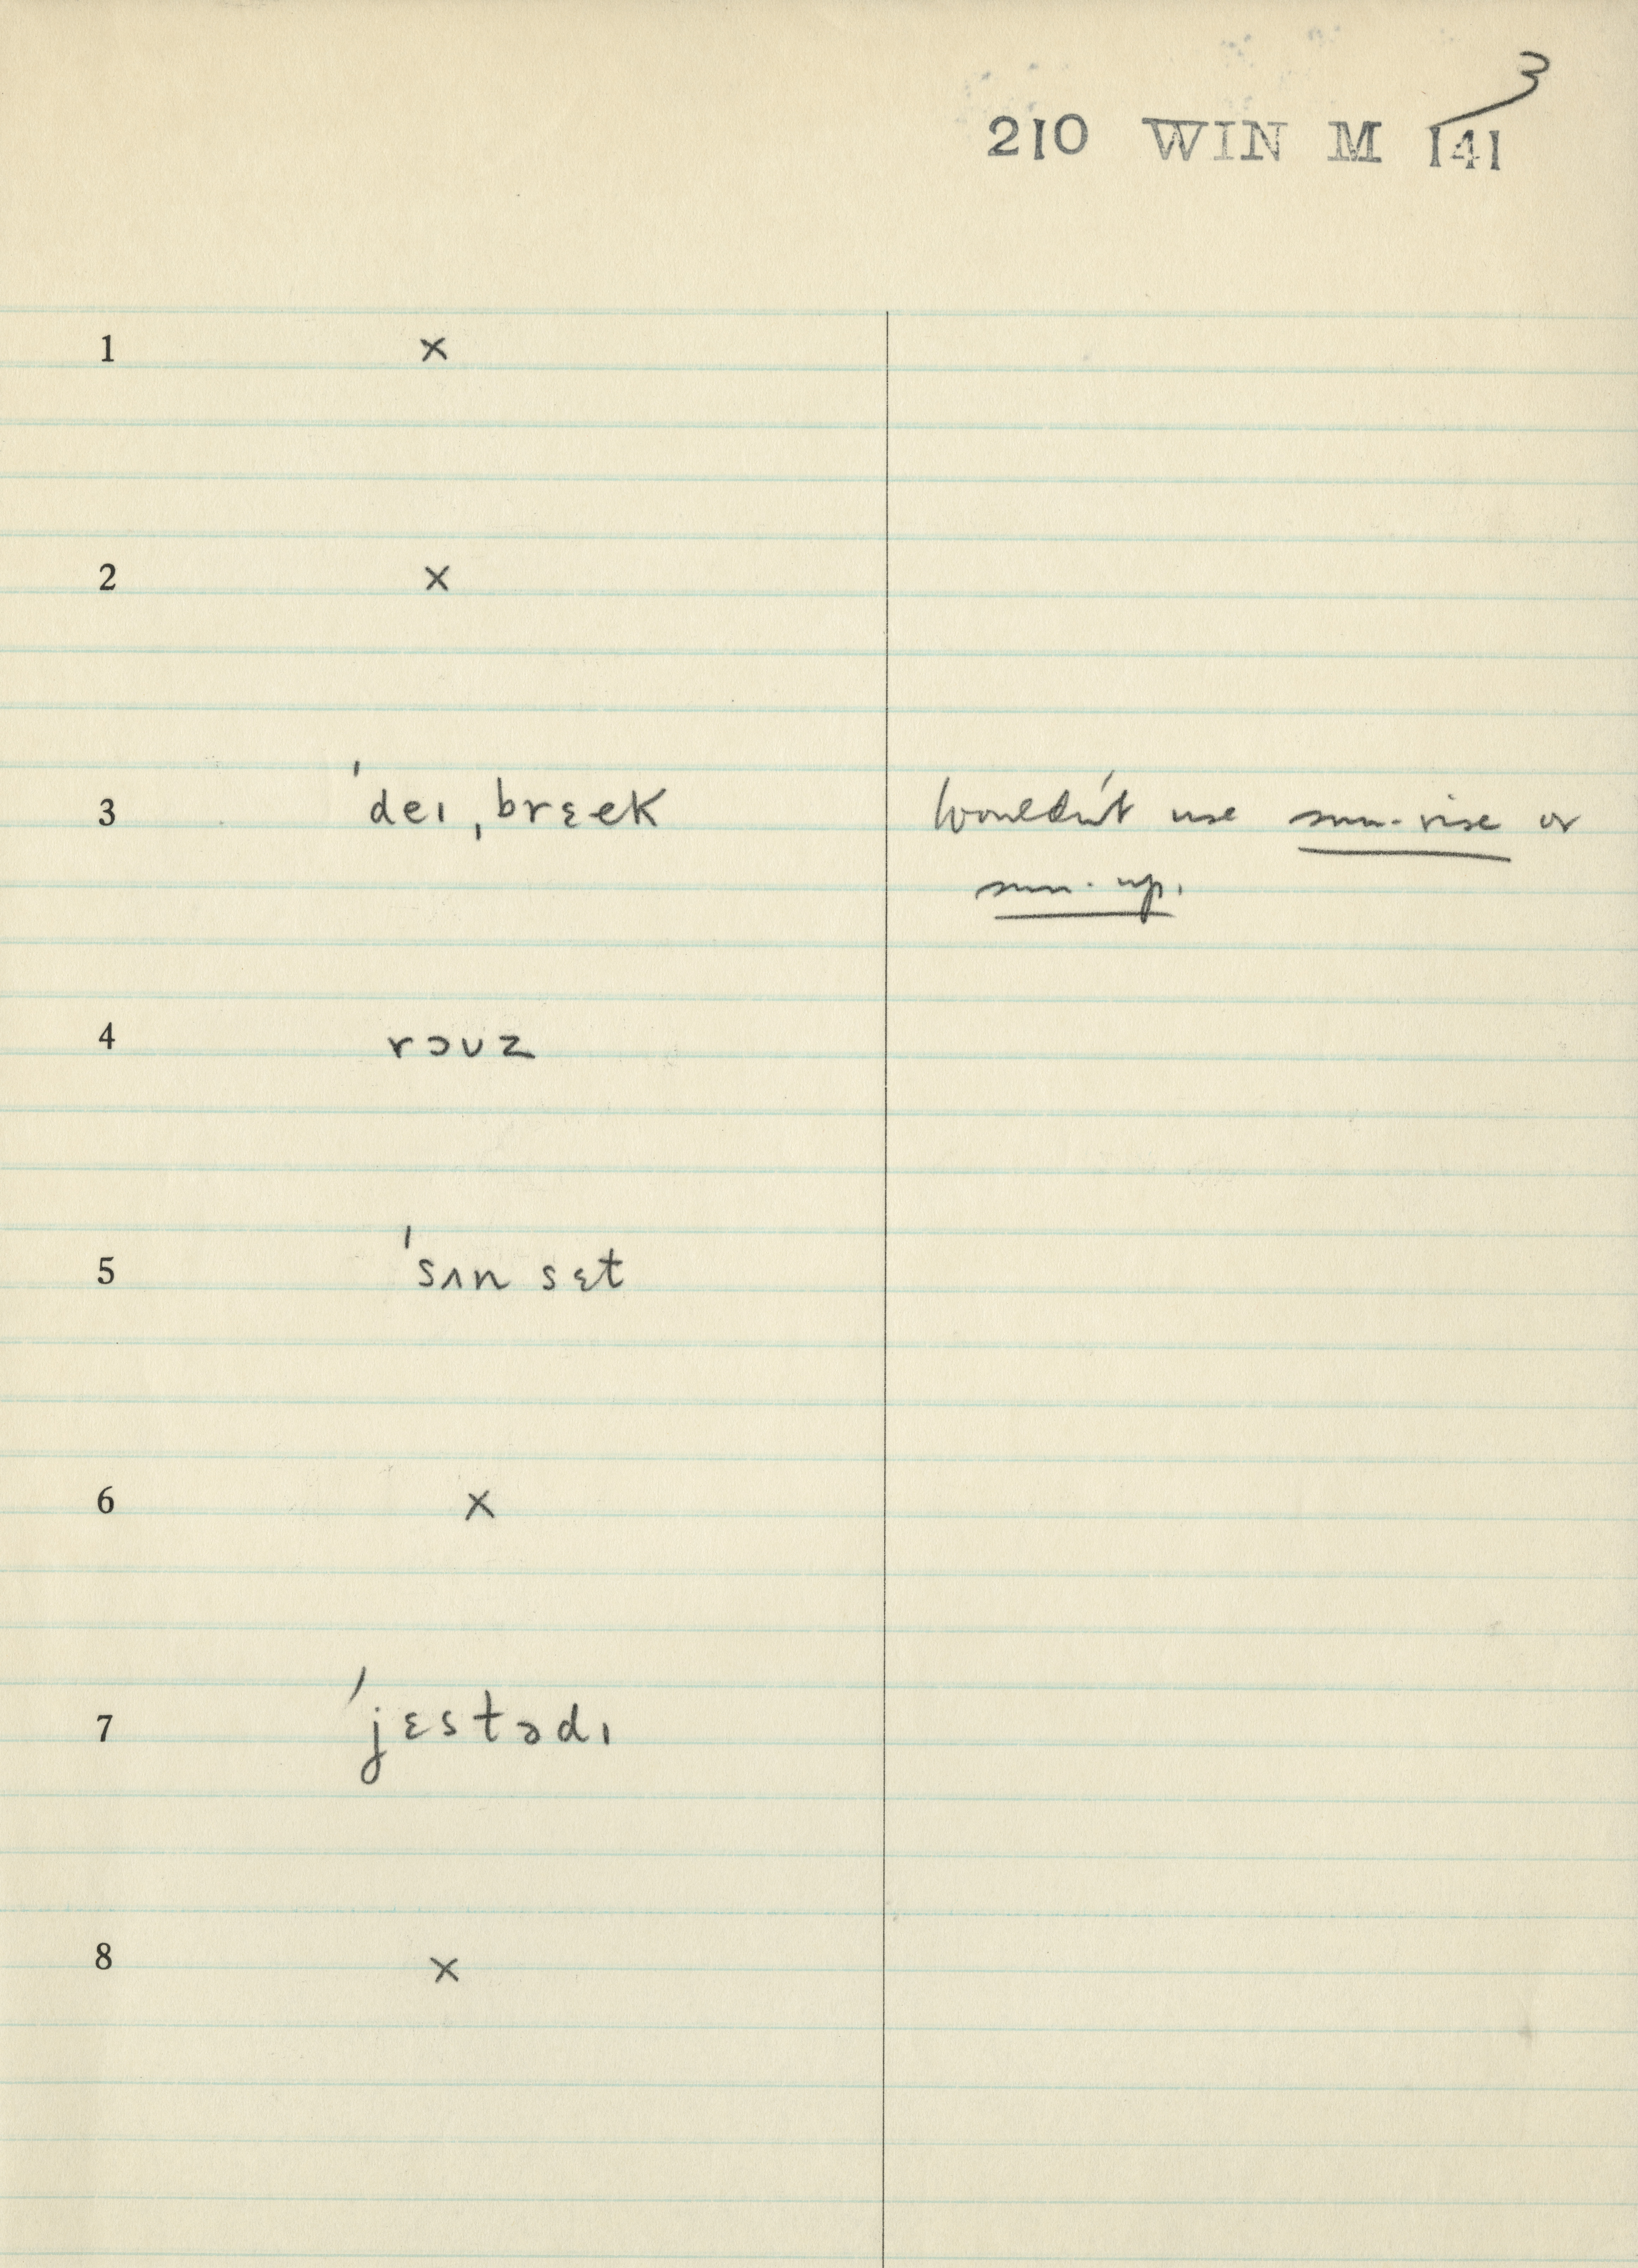 3
210 WIN M 141
1 ×
2 ×
3 ˈdeɪ ˌbrɛek Wouldn't use sun-rise or
sun-up.
4 rɔʊz
5 ˈsʌn sɛt
6 ×
7 ˈjɛstədɪ
8 ×